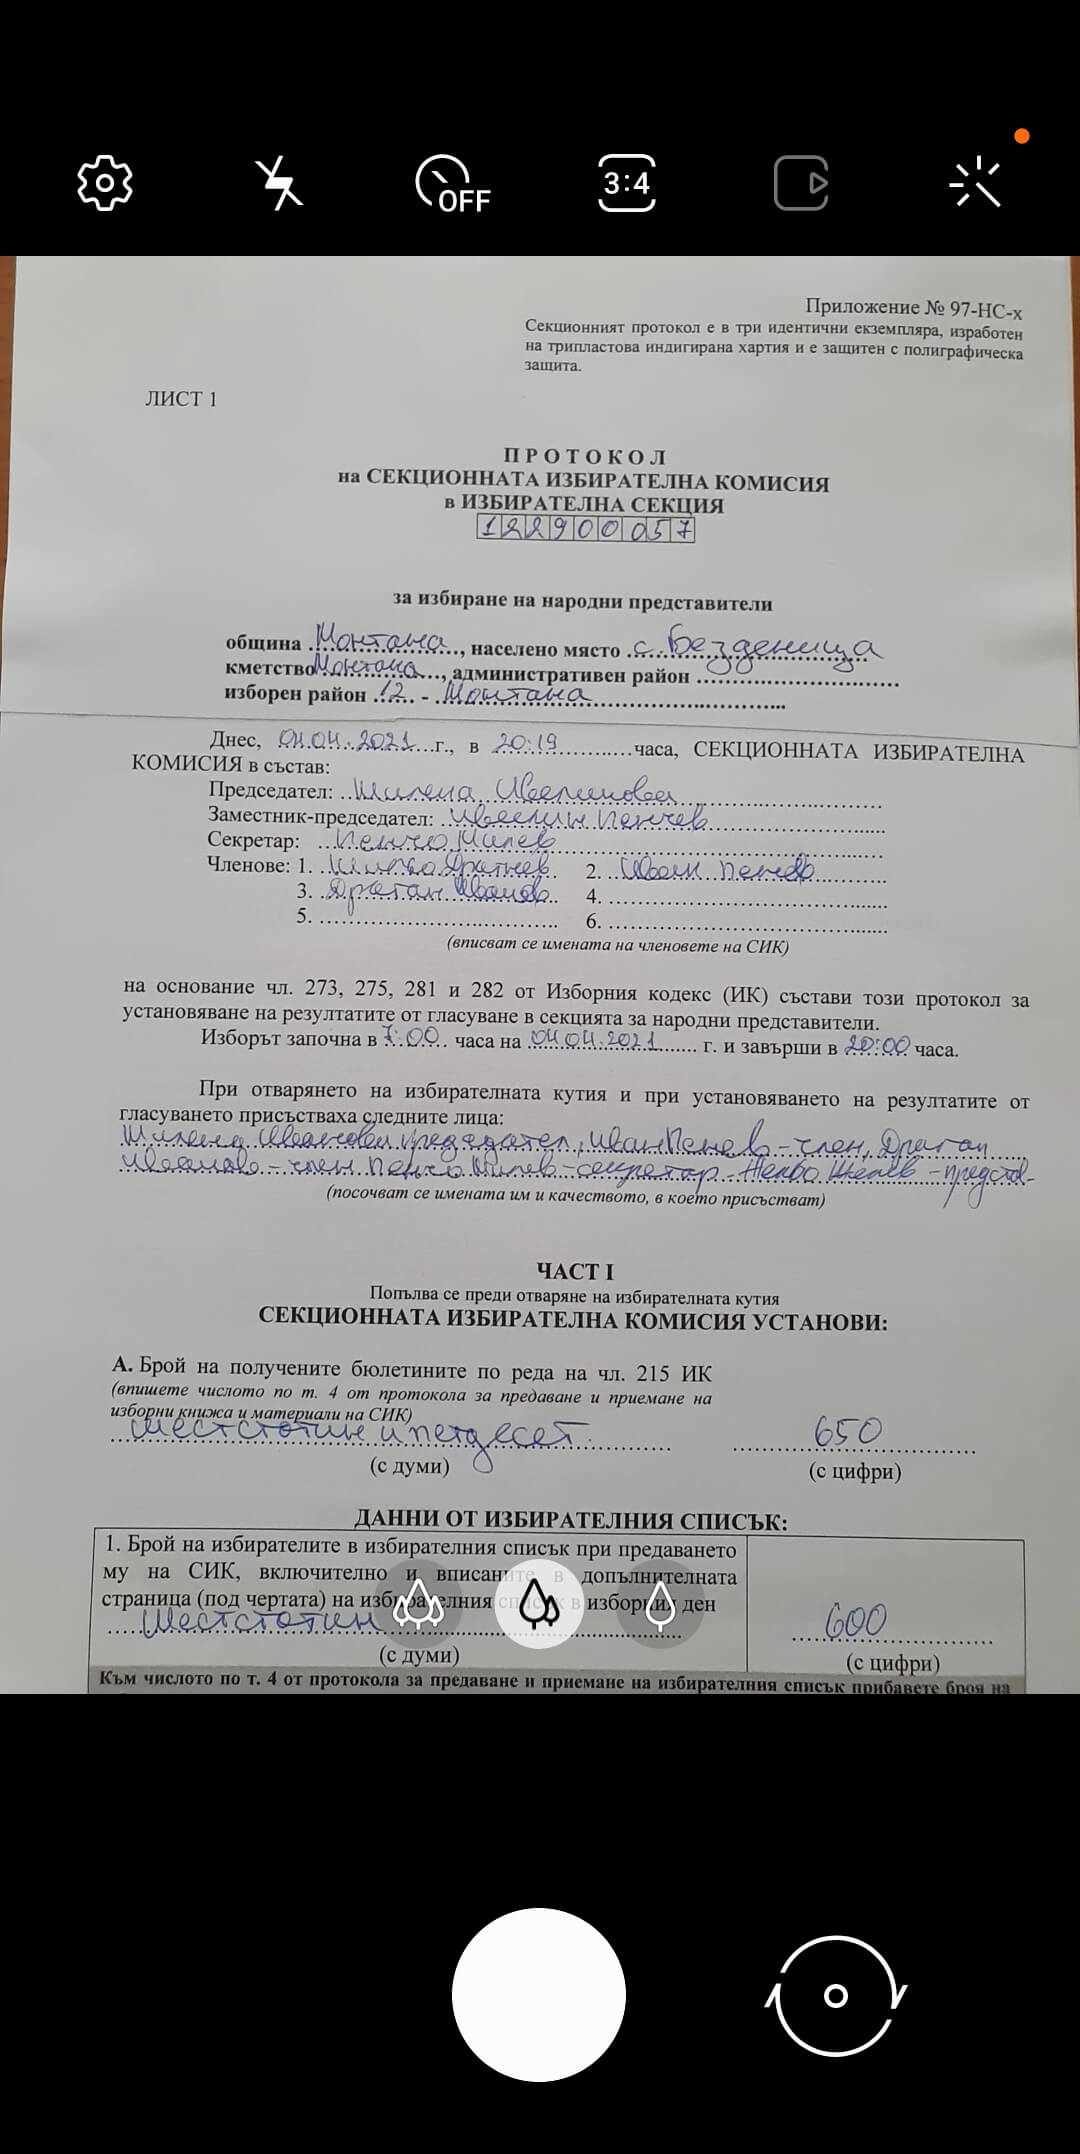 OFF
3:4
Приложение № 97-НС-х
Секционният протокол е в три идентични екземпляра, изработен
на трипластова индигирана хартия и е защитен с полиграфическа
защита.
ЛИСТ 1
П Р О Т О К О Л
на СЕКЦИОННАТА ИЗБИРАТЕЛНА КОМИСИЯ
в ИЗБИРАТЕЛНА СЕКЦИЯ
122900057
за избиране на народни представители
община Монтана, населено място с. Безденица
кметство Монтана, административен район
изборен район 12 - Монтана
Днес, 04.04.2021 г., в 20:19 часа, СЕКЦИОННАТА ИЗБИРАТЕЛНА
КОМИСИЯ в състав:
Председател: Милена
Заместник-председател: Пенчев
Секретар: Пенчо Милев
Членове: 1. 2. Иван Пенев
3. Драган Иванов 4.
5. 6.
(вписват се имената на членовете на СИК)
на основание чл. 273, 275, 281 и 282 от Изборния кодекс (ИК) състави този протокол за
установяване на резултатите от гласуване в секцията за народни представители.
Изборът започна в 7:00 часа на 04.04.2021 г. и завърши в 20:00 часа.
При отварянето на избирателната кутия и при установяването на резултатите от
гласуването присъстваха следните лица:
Милена председател, Иван Пенев - член, Драган
Иванов - член Пенчо Милев - секретар - Желев - представ-
(посочват се имената им и качеството, в което присъстват)
ЧАСТ I
Попълва се преди отваряне на избирателната кутия
СЕКЦИОННАТА ИЗБИРАТЕЛНА КОМИСИЯ УСТАНОВИ:
А. Брой на получените бюлетините по реда на чл. 215 ИК
(впишете числото по т. 4 от протокола за предаване и приемане на
изборни книжа и материали на СИК)
шестстотин и петдесет 650
(с думи) (с цифри)
ДАННИ ОТ ИЗБИРАТЕЛНИЯ СПИСЪК:
1. Брой на избирателите в избирателния списък при предаването
му на СИК, включително и вписаните в допълнителната
страница (под чертата) на избирателния списък в изборния ден
Шестстотин 600
(с думи) (с цифри)
Към числото по т. 4 от протокола за предаване и приемане на избирателния списък прибавете броя на